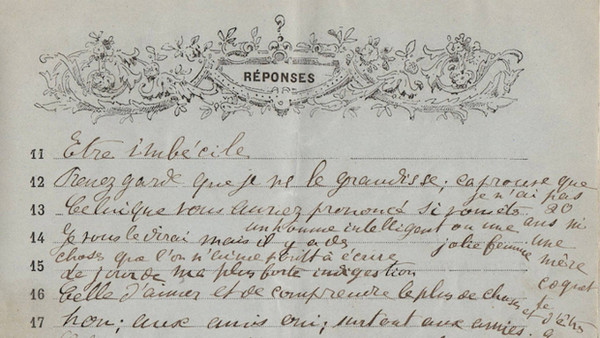 ?
RÉPONSES
11 Etre imbécile
12 Prenez garde que je ne le grandisse; ça prouve que
je n'ai pas
13 Celui que vous auriez prononcé si 30
un homme intelligent ou une ans ni
14 Je vous le dirai mais il y a des jolie femme une
choses que l'on n'aime point à écrire mère
15 coquet
Le jour de ma plus forte indigestion
16 Celle d'aimer et de comprendre le plus de choses et d'être
17 non; aux amis oui; surtout aux amies.